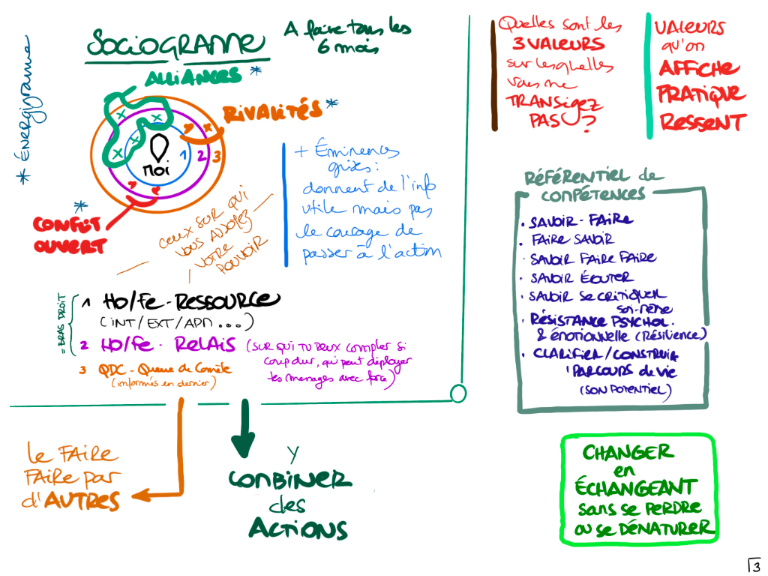 * Énergigramme
SOCIOGRAMME
A faire tous les
6 mois
ALLIANCES *
RIVALITÉS *
Moi
1 2 3
*
CONFLIT
OUVERT
ceux sur qui
vous asseyez
votre
pouvoir
+ Éminences
grises :
donnent de l'info
utile mais pas
le courage de
passer à l'action
= BRAS DROIT
1 HO/Fe-RESSOURCE
(INT/EXT/APM ...)
2 HO/Fe-RELAIS (SUR QUI TU PEUX compter si
coup dur, qui peut déployer
tes messages avec force)
3 QDC - Queue de Comète
(informés en dernier)
le FAIRE
FAIRE par
d'AUTRES
Y
COMBINER
des
ACTIONS
Quelles sont les
3 VALEURS
sur lesquelles
vous ne
TRANSIGEZ
PAS ?
VALEURS
qu'on
AFFICHE
PRATIQUE
RESSENT
RÉFÉRENTIEL de
COMPÉTENCES
• SAVOIR-FAIRE
• FAIRE SAVOIR
• SAVOIR FAIRE FAIRE
• SAVOIR ÉCOUTER
• SAVOIR SE CRITIQUER
soi-même
• RÉSISTANCE PSYCHOL.
& émotionnelle (Résilience)
• CLARIFIER/CONSTRUIRE
1 PARCOURS de VIE
(SON POTENTIEL)
CHANGER
en
ÉCHANGEANT
sans se PERDRE
ou se DÉNATURER
3